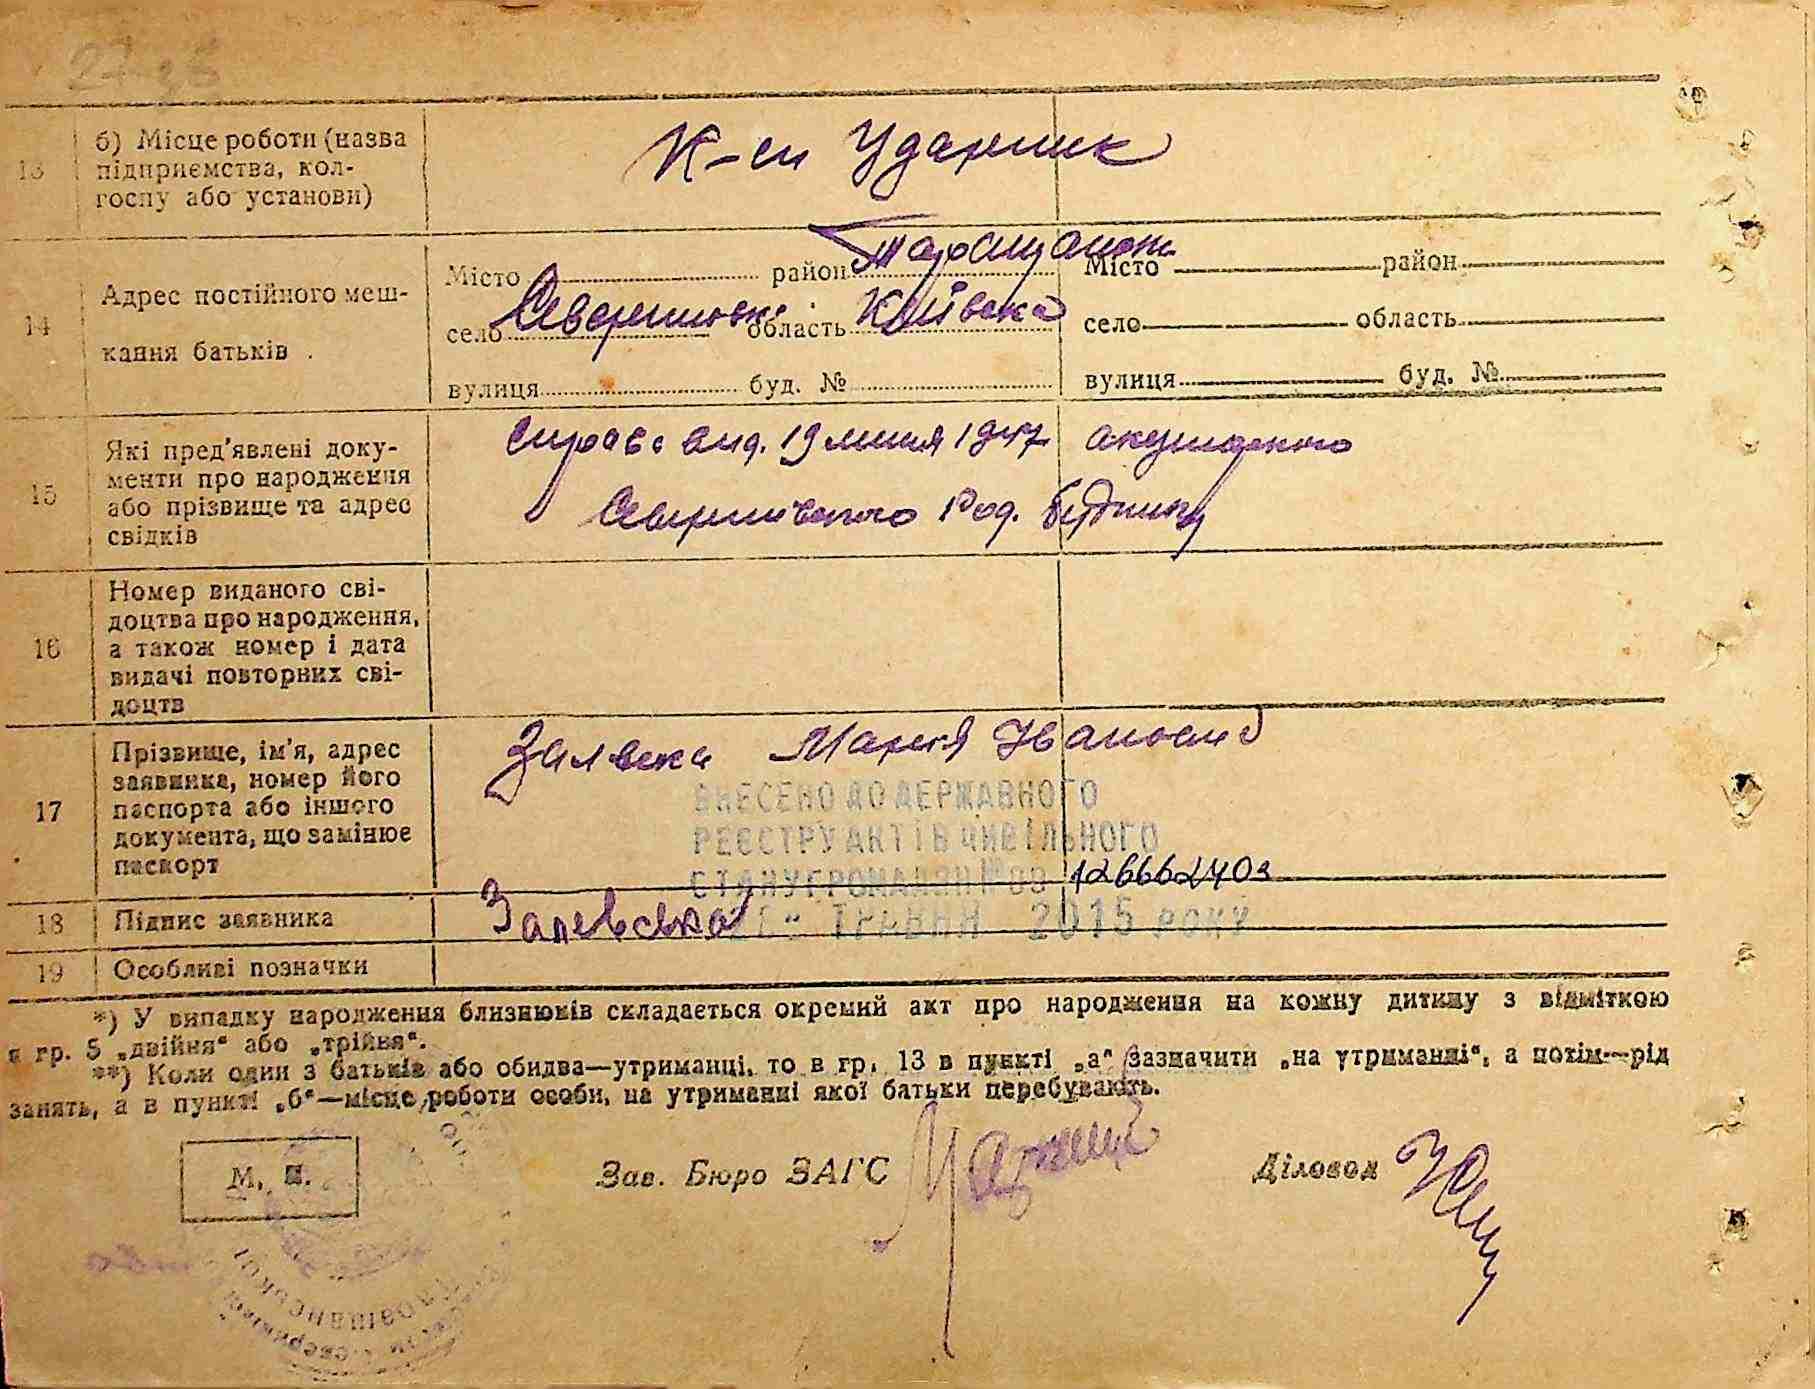 13
б) Місце роботи (назва
підприємства, кол-
госпу або установи)
К-сп Ударник
14
Адрес постійного меш-
кання батьків
Місто район Таращанськ.
село область Київська
вулиця буд. №
Місто район
село область
вулиця буд. №
15
Які пред'явлені доку-
менти про народження
або прізвище та адрес
свідків
вид. 19 липня 1947 акушерського
Род. будинку
16
Номер виданого сві-
доцтва про народження,
а також номер і дата
видачі повторних сві-
доцтв
17
Прізвище, ім'я, адрес
заявника, номер його
паспорта або іншого
документа, що замінює
паспорт
Марія Іванівна
ВНЕСЕНО ДО ДЕРЖАВНОГО
РЕЄСТРУ АКТІВ ЦИВІЛЬНОГО
СТАНУ ГРОМАДЯН № 00 126662403
ТРАВНЯ 2015 РОКУ
18
Підпис заявника
Залевська
19
Особливі позначки
*) У випадку народження близнюків складається окремий акт про народження на кожну дитину з відміткою
в гр. 5 „двійня“ або „трійня“.
**) Коли один з батьків або обидва—утриманці, то в гр. 13 в пункті „а“ зазначити „на утриманні“, а потім—рід
занять, а в пункті „б“—місце роботи особи, на утриманні якої батьки перебувають.
М. П.
Зав. Бюро ЗАГС
Діловод